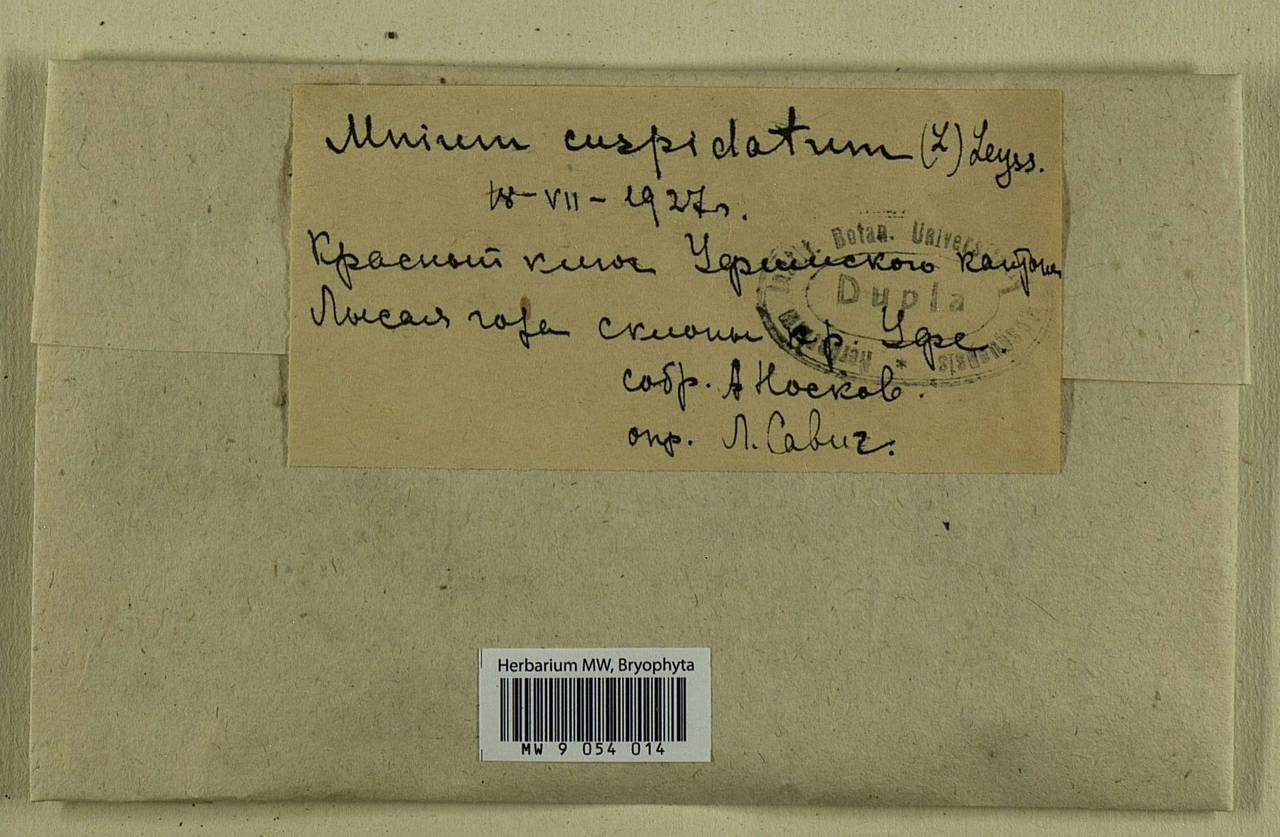 Mnium cuspidatum (L) Leyss.
18-VII-1927г.
Красный ключ Уфимского кантона
Лысая гора склоны к р. Уфе.
собр. А Носков.
опр. Л. Савич.
Botan. Universit
Dupla
Herbarium MW, Bryophyta
MW 9 054 014